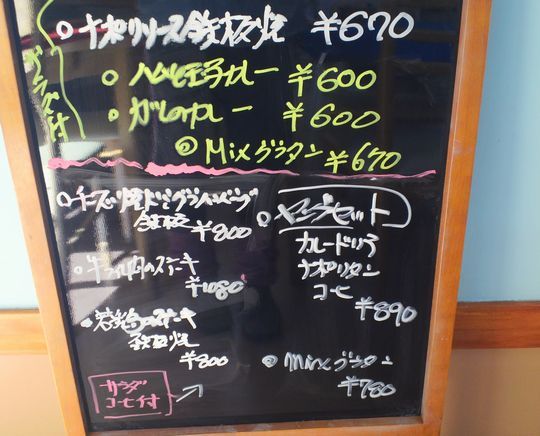 サラダ付
○ナポリソース鉄板焼 ¥670
○ハムと玉子カレー ¥600
○ カレー ¥600
◎Mixグラタン ¥670
○チーズ焼ドミグラハンバーグ
鉄板 ¥800
ステーキ
¥1080
鉄板焼
¥800
サラダ
コーヒ付
○ヤングセット
カレードリア
ナポリタン
コーヒ
¥890
◎Minxグラタン
¥780